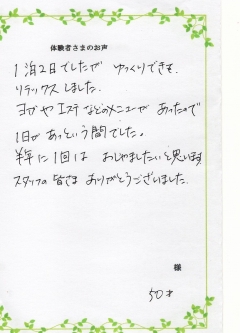 体験者さまのお声
1泊2日でしたが ゆっくりできて、
リラックスしました。
ヨガや エステ などのメニューが あったので
1日が あっという間でした。
半年に 1回は おじゃましたいと思います
スタッフの 皆さま ありがとうございました。
様
50才